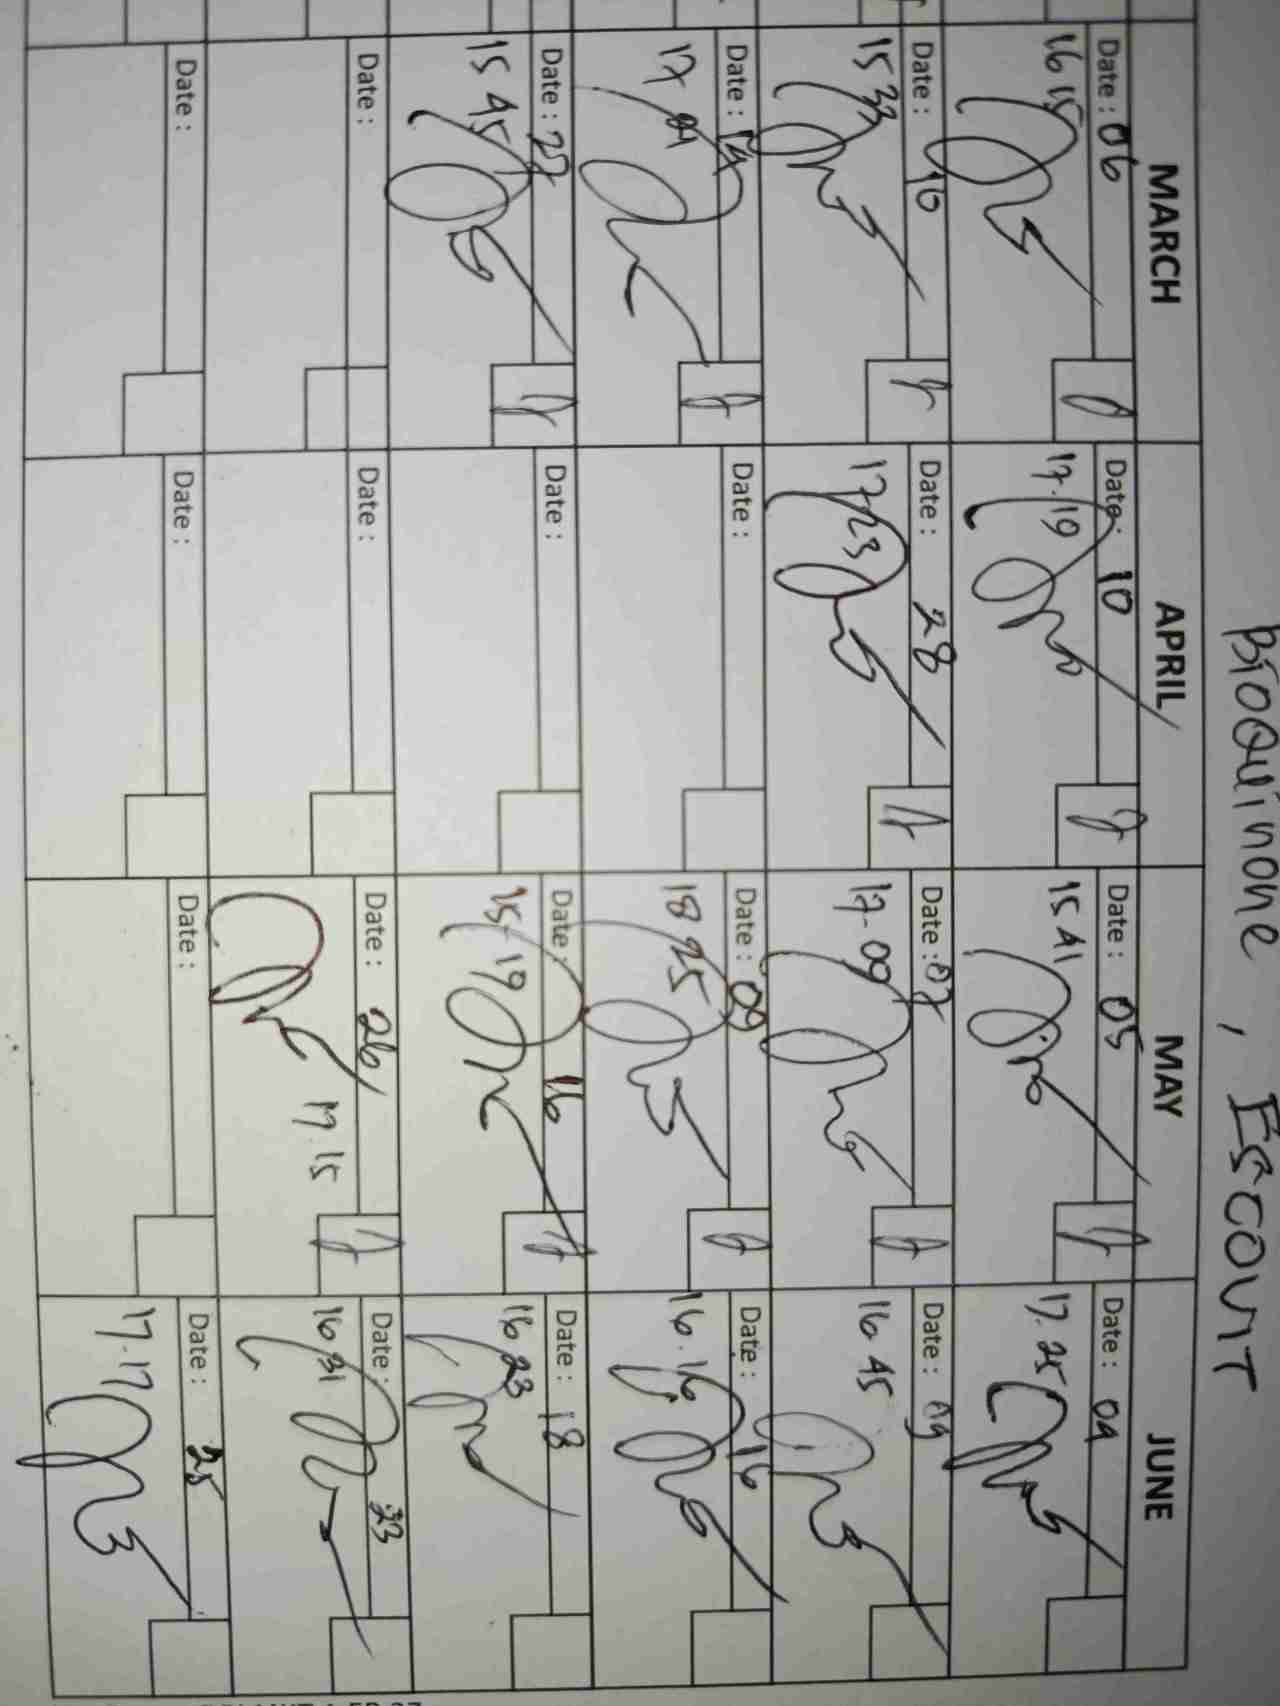 BioQuinone, Escovit
MARCH APRIL MAY JUNE
Date: 06 Date: 10 Date: 05 Date: 04
16 15 17.19 15 41 17.25
Date: 10 Date: 28 Date: 07 Date: 09
15 33 17 23 17-09 16 45
Date: 14 Date: Date: 09 Date: 16
17 18 25 16.16
Date: 27 Date: Date: 16 Date: 18
15 45 15-19 16 23
Date: Date: Date: 26 Date: 23
17.15 16 31
Date: Date: Date: Date: 25
17.17